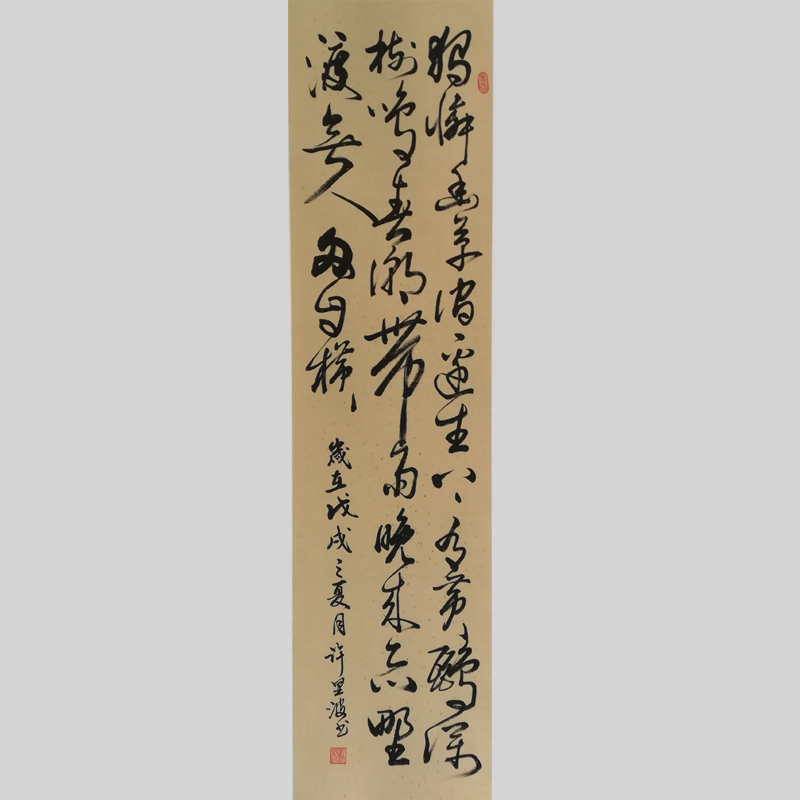 獨憐幽草澗邊生上有黃鸝深
樹鳴春潮帶雨晚來急野
渡無人舟自橫
歲在戊戌之夏月許星波書